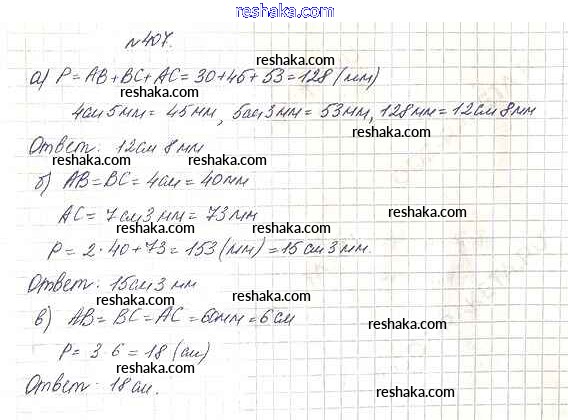 reshaka.com
№407.
reshaka.com reshaka.com
а) P = AB + BC + AC = 30 + 45 + 53 = 128 (мм)
reshaka.com reshaka.com
4см 5мм = 45мм, 5см 3мм = 53мм, 128мм = 12см 8мм
reshaka.com
Ответ: 12см 8мм
reshaka.com reshaka.com reshaka.com
б) AB = BC = 4см = 40мм
AC = 7см 3мм = 73мм
reshaka.com reshaka.com
P = 2 · 40 + 73 = 153 (мм) = 15см 3мм.
reshaka.com
Ответ: 15см 3мм
reshaka.com reshaka.com
в) AB = BC = AC = 60мм = 6см
reshaka.com
P = 3 6 = 18 (см)
reshaka.com
Ответ: 18см.
reshaka.com reshaka.com